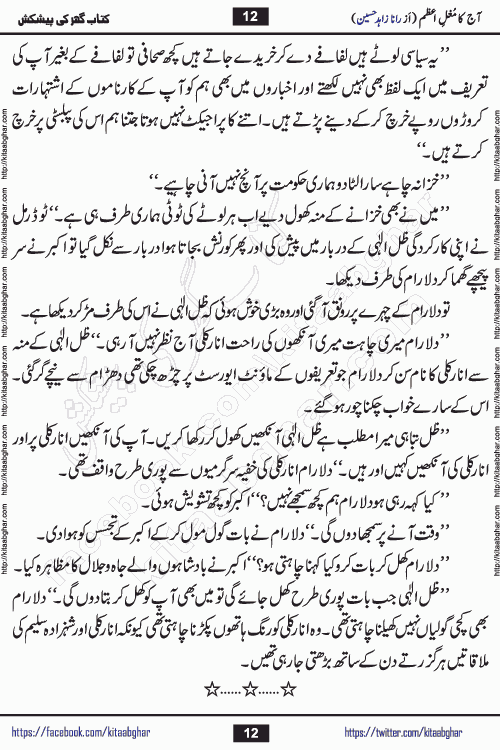 آج کا مُغلِ اعظم (از رانا زاہد حسین)
12
کتاب گھر کی پیشکش
’’یہ سیاسی لوٹے ہیں لفافے دے کر خریدے جاتے ہیں کچھ صحافی تو لفافے کے بغیر آپ کی
تعریف میں ایک لفظ بھی نہیں لکھتے اور اخباروں میں بھی ہم کو آپ کے کارناموں کے اشتہارات
کروڑوں روپے خرچ کر کے دینے پڑتے ہیں۔ اتنے کا پراجیکٹ نہیں ہوتا جتنا ہم اس کی پبلسٹی پر خرچ
کرتے ہیں۔‘‘
’’خزانہ چاہے سارا لٹا دو ہماری حکومت پر آنچ نہیں آنی چاہیے۔‘‘
’’میں نے بھی خزانے کے منہ کھول دیے اب ہر لوٹے کی ٹوٹی ہماری طرف ہی ہے۔‘‘ ٹوڈرمل
نے اپنی کارکردگی ظل الٰہی کے دربار میں پیش کی اور پھر کورنش بجاتا ہوا دربار سے نکل گیا تو اکبر نے سر
پیچھے گھما کر دلارام کی طرف دیکھا۔
تو دلارام کے چہرے پر رونق آ گئی اور وہ بڑی خوش ہوئی کہ ظل الٰہی نے اس کی طرف مڑ کر دیکھا ہے۔
’’دلارام میری چاہت میری آنکھوں کی راحت انارکلی آج نظر نہیں آ رہی۔‘‘ ظل الٰہی کے منہ
سے انارکلی کا نام سن کر دلارام جو تعریفوں کے ماؤنٹ ایورسٹ پر چڑھ چکی تھی دھڑام سے نیچے گر گئی۔
اس کے سارے خواب چکنا چور ہو گئے۔
’’ظل تباہی میرا مطلب ہے ظل الٰہی آنکھیں کھول کر رکھا کریں۔ آپ کی آنکھیں انارکلی پر اور
انارکلی کی آنکھیں کہیں اور ہیں۔‘‘ دلارام انارکلی کی خفیہ سرگرمیوں سے پوری طرح واقف تھی۔
’’کیا کہہ رہی ہو دلارام ہم کچھ سمجھے نہیں؟‘‘ اکبر کو کچھ تشویش ہوئی۔
’’وقت آنے پر سمجھا دوں گی۔‘‘ دلارام نے بات گول مول کر کے اکبر کے تجسس کو ہوا دی۔
’’دلارام کھل کر بات کرو کیا کہنا چاہتی ہو؟‘‘ اکبر نے بادشاہوں والے جاہ و جلال کا مظاہرہ کیا۔
’’ظل الٰہی جب بات پوری طرح کھل جائے گی تو میں بھی آپ کو کھل کر بتا دوں گی۔‘‘ دلارام
بھی کچی گولیاں نہیں کھیلنا چاہتی تھی۔ وہ انارکلی کو رنگ ہاتھوں پکڑنا چاہتی تھی کیونکہ انارکلی اور شہزادہ سلیم کی
ملاقاتیں ہر گزرتے دن کے ساتھ بڑھتی جا رہی تھیں۔
☆......☆......☆
https://facebook.com/kitaabghar
12
https://twitter.com/kitaabghar
http://kitaabghar.com
http://kitaabghar.com